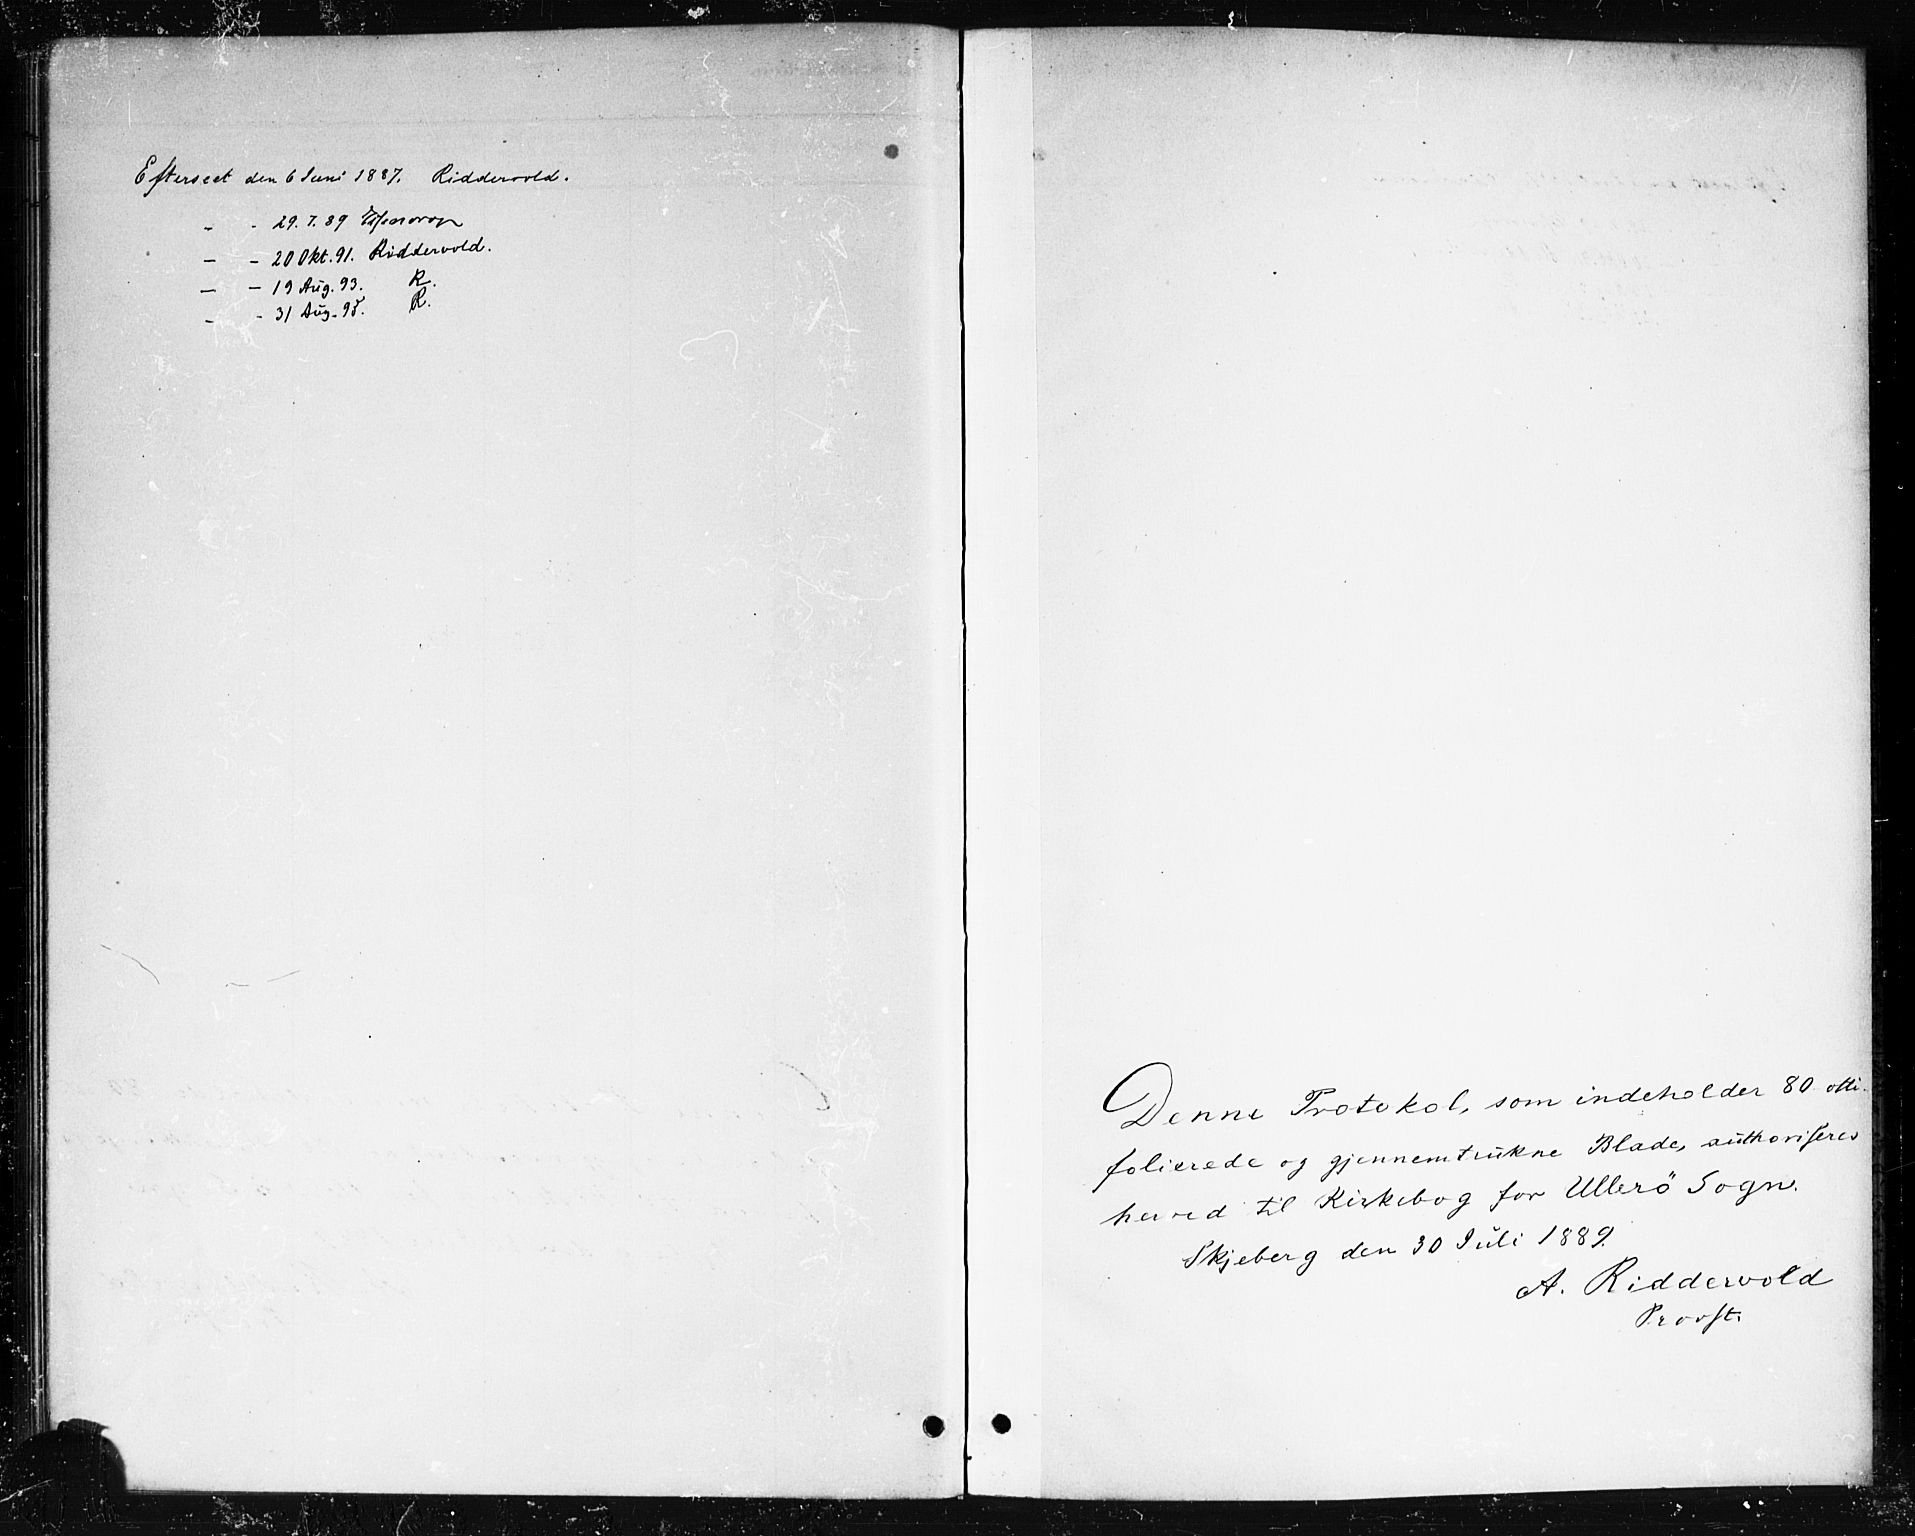 Efterseet den 6 Juni 1887. Riddervold.
" - 29.7.89
" - 20 Okt. 91. Riddervold.
" - 19 Aug. 93. R.
" - 31 Aug. 95. R.
Denne Protokol, som indeholder 80 otti
folierede og gjennemtrukne Blade, authoriseres
herved til Kirkebog for Ullerö Sogn.
Skjeberg den 30 Juli 1889.
A. Riddervold
Provst.